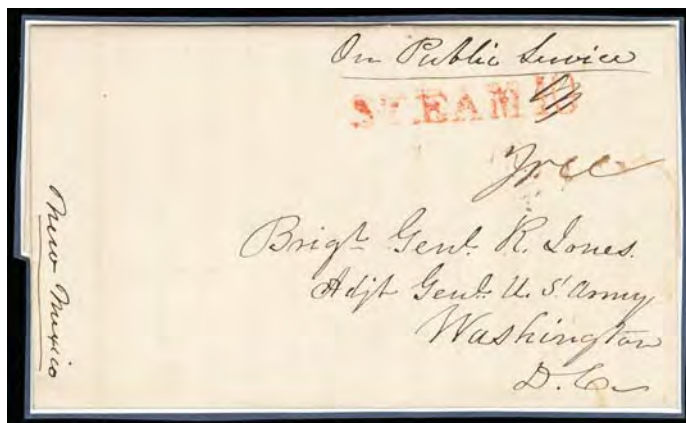 On Public Service
STEAM 10
Free
Brigt. Genl. R. Jones.
Adjt Genl. U. S. Army
Washington
D. C.
New Mexico